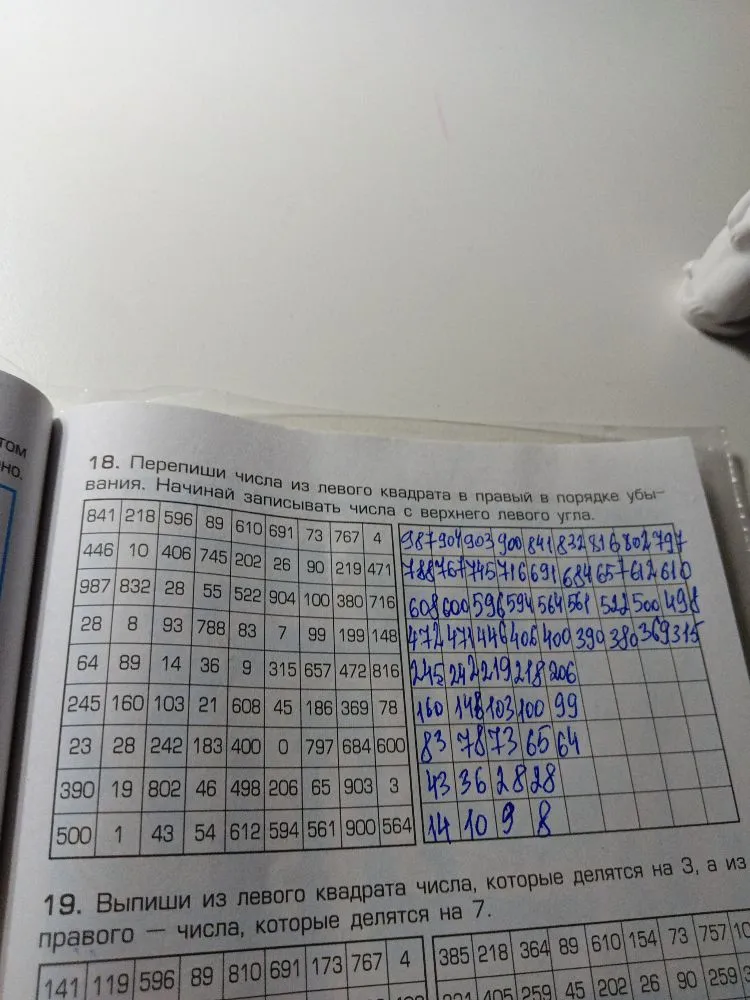 том
но.
18. Перепиши числа из левого квадрата в правый в порядке убы-
вания. Начинай записывать числа с верхнего левого угла.
841 218 596 89 610 691 73 767 4
987 904 903 900 841 832 816 802 797
446 10 406 745 202 26 90 219 471
788 767 745 716 691 684 657 612 610
987 832 28 55 522 904 100 380 716
608 600 596 594 564 561 522 500 498
28 8 93 788 83 7 99 199 148
472 471 446 406 400 390 380 369 315
64 89 14 36 9 315 657 472 816
245 242 219 218 206
245 160 103 21 608 45 186 369 78
160 148 103 100 99
23 28 242 183 400 0 797 684 600
83 78 73 65 64
390 19 802 46 498 206 65 903 3
43 36 28 28
500 1 43 54 612 594 561 900 564
14 10 9 8
19. Выпиши из левого квадрата числа, которые делятся на 3, а из
правого — числа, которые делятся на 7.
141 119 596 89 810 691 173 767 4
385 218 364 89 610 154 73 757 10
405 259 45 202 26 90 259